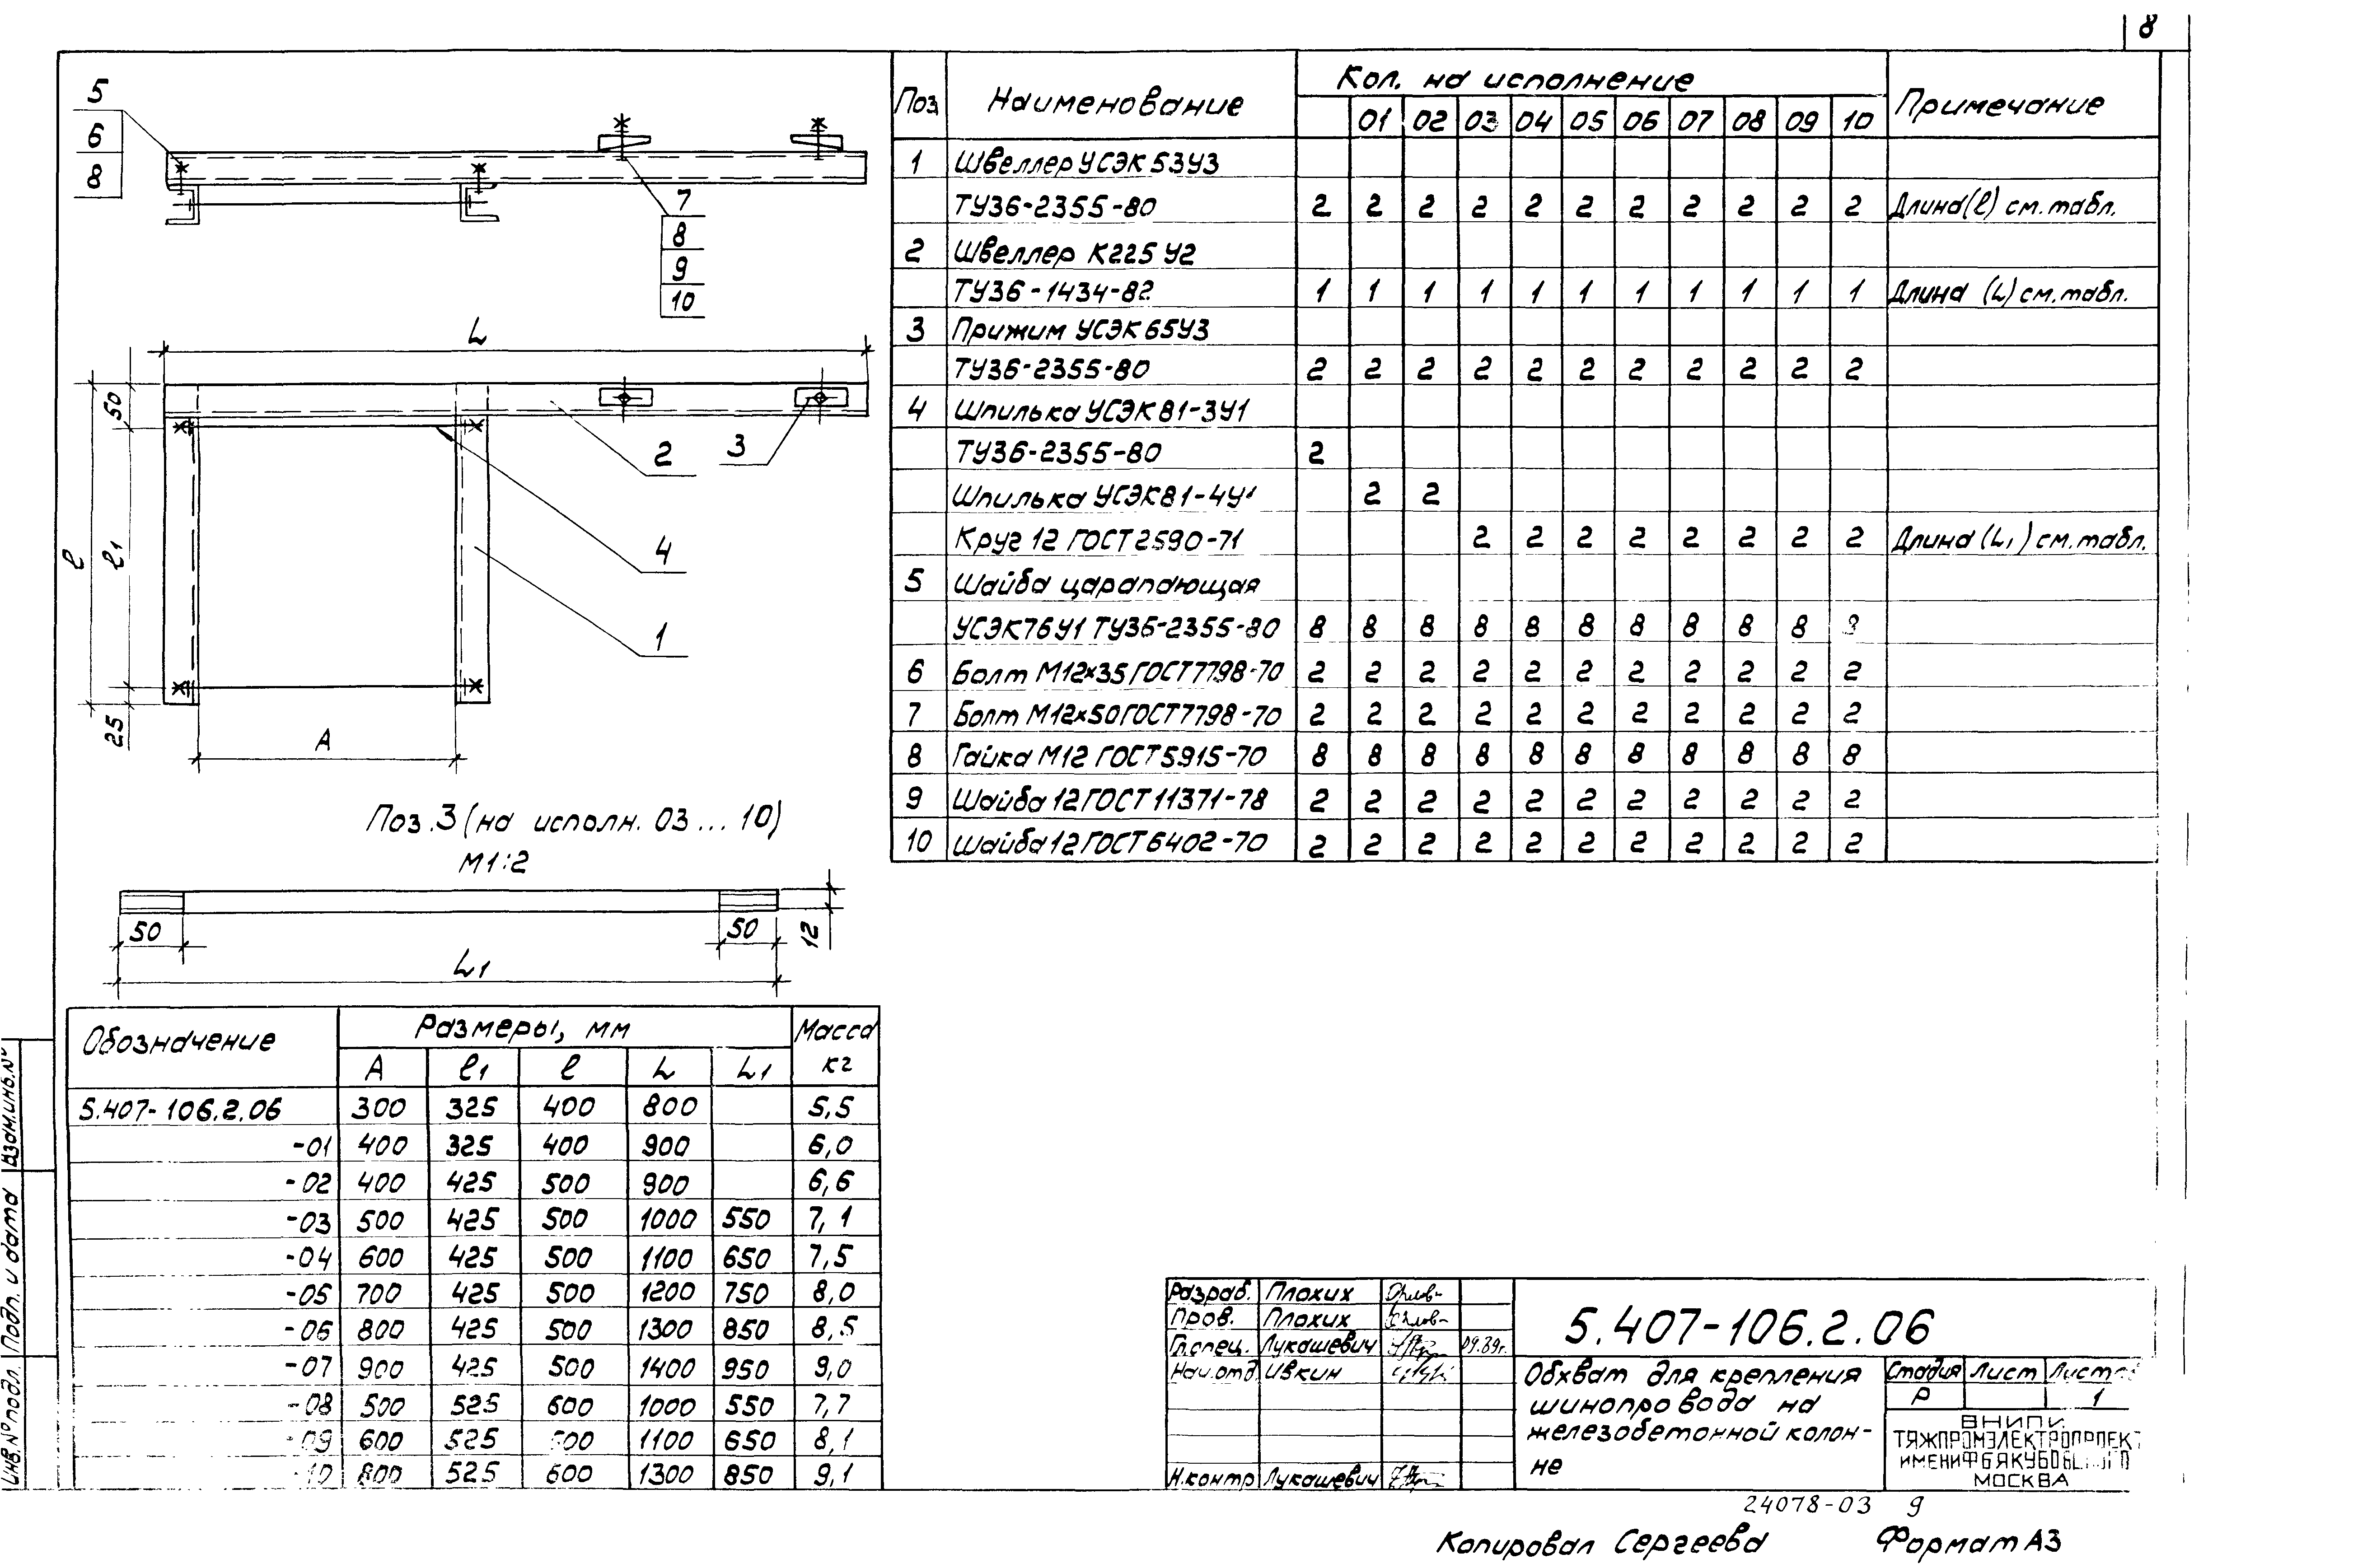 8
5
6
8
7
8
9
10
L
50
l
l1
25
A
2
3
4
1
Поз.3 (на исполн. 03...10)
М1:2
50
50
12
L1
Поз Наименование Кол. на исполнение Примечание
01 02 03 04 05 06 07 08 09 10
1 Швеллер УСЭК 53У3
ТУ36-2355-80 2 2 2 2 2 2 2 2 2 2 2 Длина(l) см.табл.
2 Швеллер К225У2
ТУ36-1434-82 1 1 1 1 1 1 1 1 1 1 1 Длина (L) см.табл.
3 Прижим УСЭК65У3
ТУ36-2355-80 2 2 2 2 2 2 2 2 2 2 2
4 Шпилька УСЭК81-3У1
ТУ36-2355-80 2
Шпилька УСЭК81-4У1 2 2
Круг 12 ГОСТ2590-71 2 2 2 2 2 2 2 2 Длина (L1) см.табл.
5 Шайба царапающая
УСЭК76У1 ТУ36-2355-80 8 8 8 8 8 8 8 8 8 8 8
6 Болт М12х35 ГОСТ7798-70 2 2 2 2 2 2 2 2 2 2 2
7 Болт М12х50 ГОСТ7798-70 2 2 2 2 2 2 2 2 2 2 2
8 Гайка М12 ГОСТ5915-70 8 8 8 8 8 8 8 8 8 8 8
9 Шайба 12 ГОСТ11371-78 2 2 2 2 2 2 2 2 2 2 2
10 Шайба 12 ГОСТ6402-70 2 2 2 2 2 2 2 2 2 2 2
Обозначение Размеры, мм Масса
А l1 l L L1 кг
5.407-106.2.06 300 325 400 800 5,5
-01 400 325 400 900 6,0
-02 400 425 500 900 6,6
-03 500 425 500 1000 550 7,1
-04 600 425 500 1100 650 7,5
-05 700 425 500 1200 750 8,0
-06 800 425 500 1300 850 8,5
-07 900 425 500 1400 950 9,0
-08 500 525 600 1000 550 7,7
-09 600 525 600 1100 650 8,1
-10 800 525 600 1300 850 9,1
Взам.инв.№
Подп. и дата
Инв.№ подл.
Разраб. Плохих
Пров. Плохих
Гл.спец. Лукашевич 09.89г.
Нач.отд Ивкин
Н.контр Лукашевич
5.407-106.2.06
Обхват для крепления
шинопровода на
железобетонной колон-
не
Стадия Лист Листов
Р 1
ВНИПИ
ТЯЖПРОМЭЛЕКТРОПРОЕКТ
ИМЕНИ Ф.Б.ЯКУБОВСКОГО
МОСКВА
24078-03 9
Копировал Сергеева Формат А3